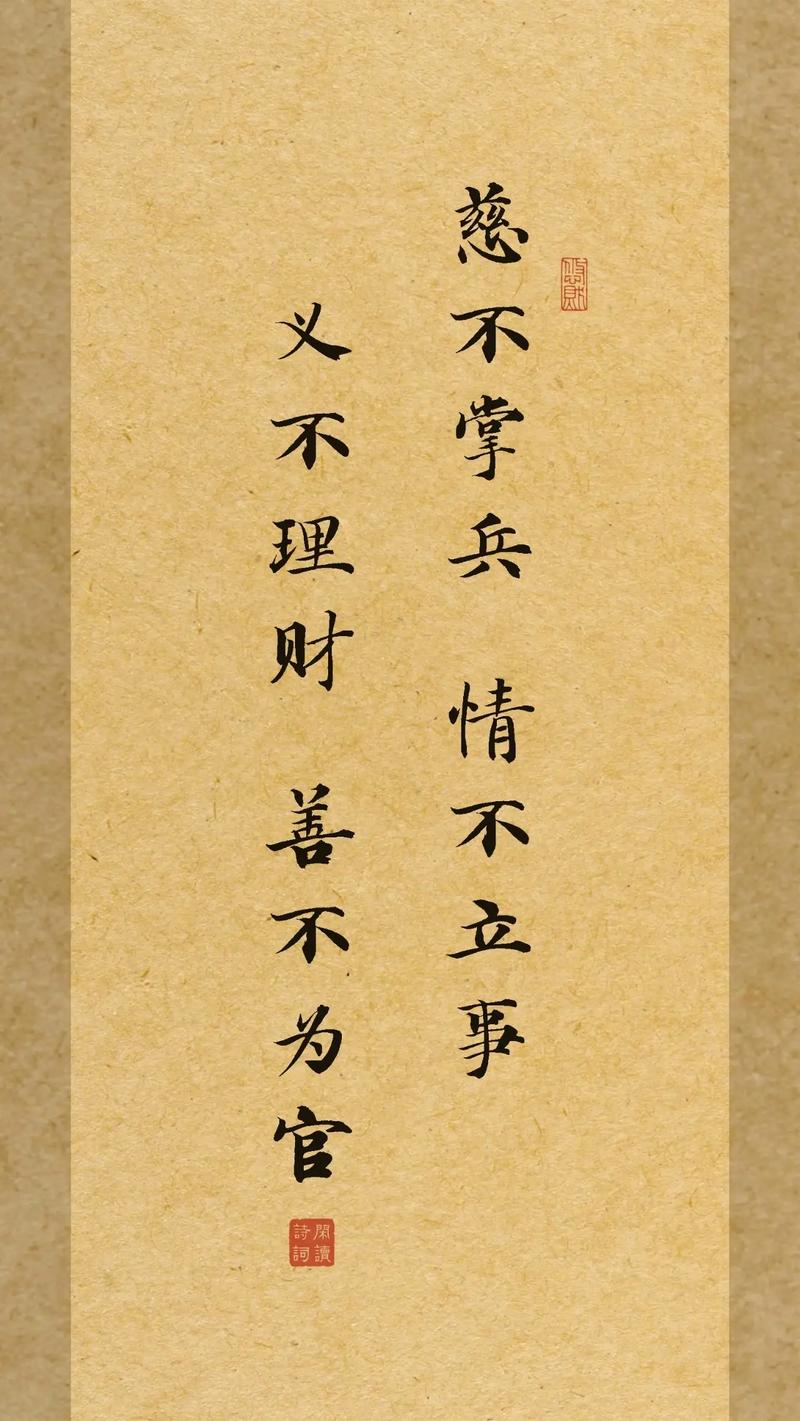 慈不掌兵 情不立事
义不理财 善不为官
閑讀
詩詞